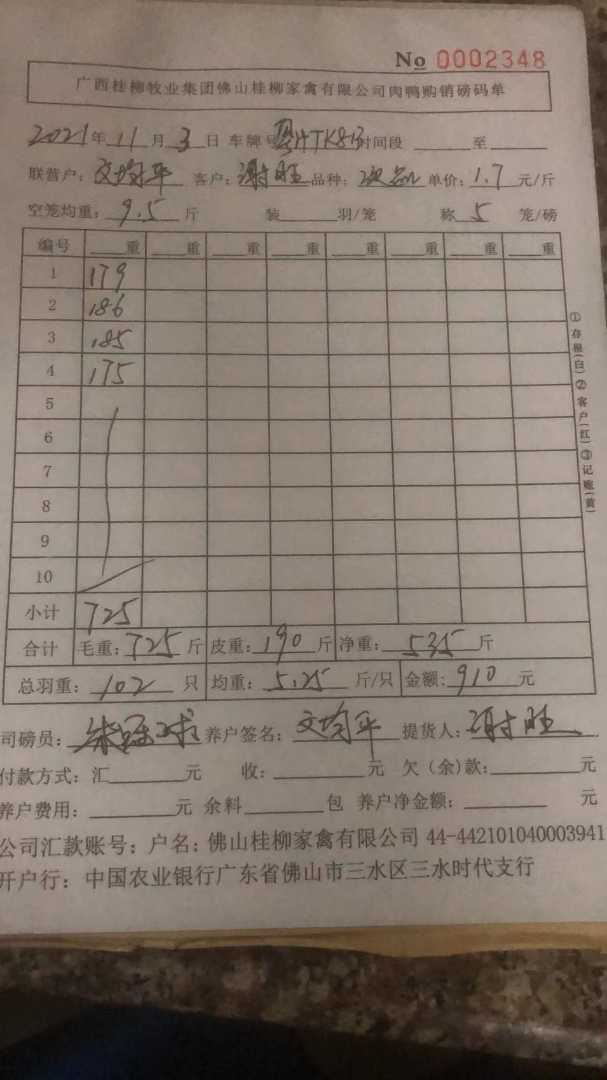 No 0002348
广西桂柳牧业集团佛山桂柳家禽有限公司肉鸭购销磅码单
2021年11月3日 车牌号 时间段 至
联营户：文均平 客户：谢旺 品种：次品 单价：1.7元/斤
空笼均重：9.5斤 装 羽/笼 称5笼/磅
编号 重 重 重 重 重 重 重 重
1 179
2 186
3 185
4 175
5
6
7
8
9
10
小计 725
合计 毛重：725斤 皮重：190斤 净重：535斤
总羽重：102只 均重：5.25斤/只 金额：910元
司磅员： 养户签名：文均平 提货人：谢旺
付款方式：汇 元 收： 元 欠（余）款： 元
养户费用： 元 余料 包 养户净金额： 元
公司汇款账号：户名：佛山桂柳家禽有限公司 44-442101040003941
开户行：中国农业银行广东省佛山市三水区三水时代支行
①存根(白)②客户(红)③记账(黄)